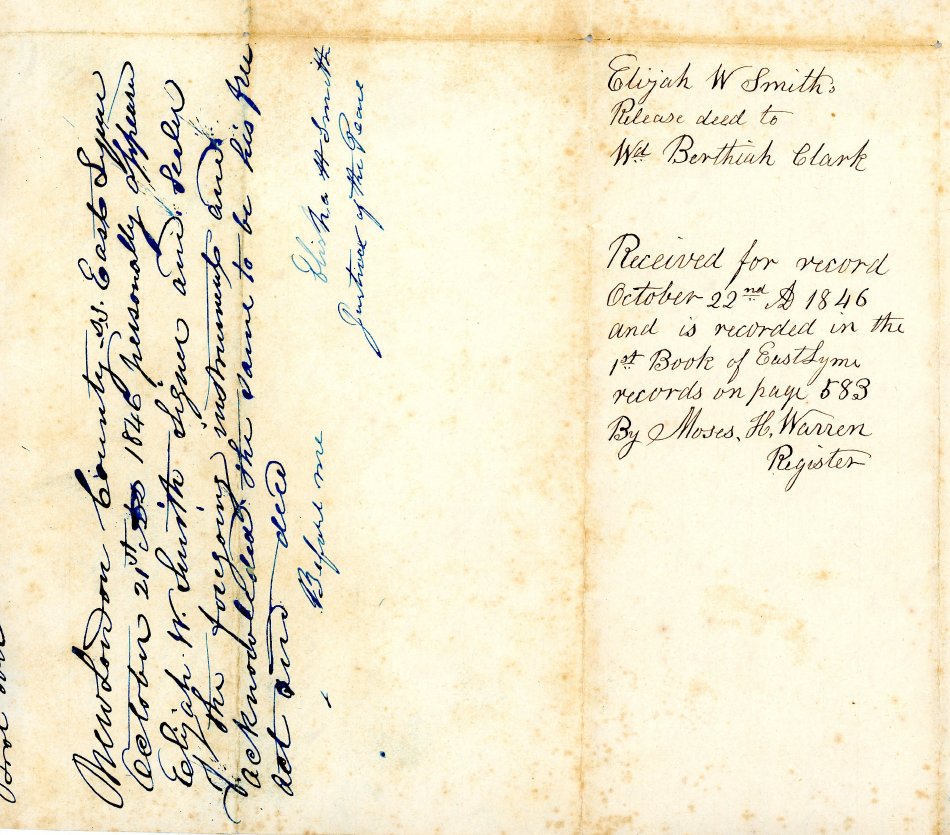 New London County ss. East Lyme
October 21st AD 1846 personally Appeared
Elijah W. Smith Signer and Sealer
of the foregoing instrument and
acknowledged the same to be his free
act and deed
Before me
Elisha H Smith
Justice of the Peace
Elijah W Smiths
Release deed to
Wd Berthiah Clark
Received for record
October 22nd AD 1846
and is recorded in the
1st Book of East Lyme
records on page 583
By Moses, H, Warren
Register